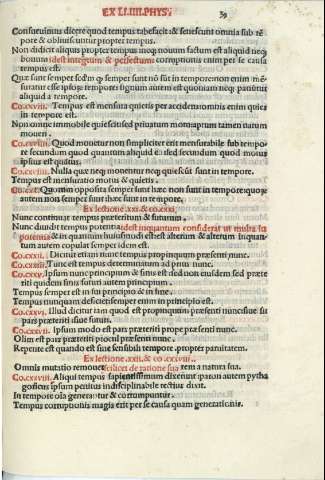 EX LI.IIII.PHYS.
39
Consueuimus dicere quod tempus tabefacit & senescunt omnia sub tēpore & obliuiscuntur propter tempus.
Non didicit aliquis propter tempus neq; nouum factum est aliquid neq;
bonum idest integrum & perfectum: corruptionis enim per se causa
tempus est.
Quæ sunt semper sedm q semper sunt nō sūt in tempore non enim
aliquid a tempore.
Co.cxviii. Tempus est mensura quietis per accidens omnis enim quies
in tempore est.
Non omne immobile quiescit sed priuatum motu aptum tamen natum
moueri.
Quod mouetur non simpliciter erit mensurabile sub tempore secundum quod quantum aliquid est sed secundum quod motus
ipsius est quātus.
Nulla quæ neq; mouentur neq; quiescūt sunt in tempore.
Tempus est mensuratio motus & quietis.
Quorum opposita semper sunt hæc non sunt in tempore: quorum
autem non semper sunt hæc sunt in tempore.
Ex lectione .xxi. & co.cxxi.
Nunc continuat tempus præteritum & futurum.
Nunc diuidit tempus idest inquantum considerat ut multa in
potentia & in quantum
tum autem copulat semper idem est.
Co.cxxii. Dicitur etiam nunc tempus propinquum præsenti nunc.
Co.cxxiii. Tunc est tempus determinatum ad prius nunc.
Co.cxxv. Ipsum nunc principium & finis est sed non eiusdem sed præteriti quidem finis futuri autem principium.
Tempus semper est in sui principio & in fine.
Tempus nunquam deficiet: semper enim in principio est.
Co.cxxvi. Illud dicitur iam quod est propinquum præsenti nunc siue sit
pars præteriti siue futuri.
Co.cxxvii. Ipsum modo est pars præteriti prope præsenti nunc.
Olim est pars præteriti procul præsenti nunc.
Repente est quando est sine sensibili tempore propter paruitatem.
Ex lectione .xxii. & co.cxxviii.
Omnis mutatio remouet scilicet de ratione sua rem a natura sua.
Co.cxxviii. Aliqui tempus sapientissimum dixerunt: paron autem pythagoricus ipsum penitus indisciplinabile rectius dixit.
In tempore oīa generantur & corrumpuntur.
Tempus corruptionis magis erit per se causa quam generationis.